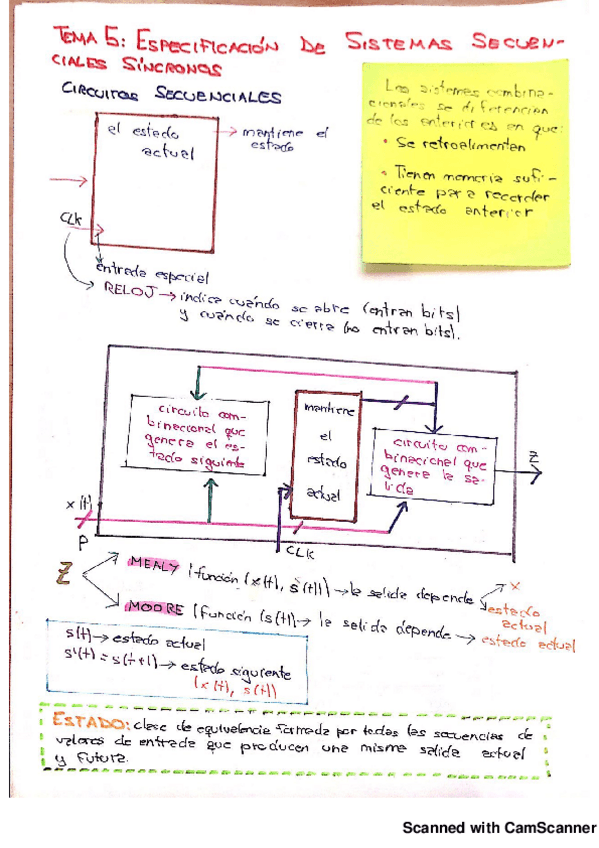 TEMA 5: ESPECIFICACIÓN DE SISTEMAS SECUEN-
CIALES SÍNCRONOS
CIRCUITOS SECUENCIALES
el estado
actual
mantiene el
estado
CLK
entrada especial
RELOJ → indica cuándo se abre (entran bits)
y cuándo se cierra (no entran bits).
Los sistemas combina-
cionales se diferencian
de los anteriores en que:
• Se retroalimentan
• Tienen memoria sufi-
ciente para recorder
el estado anterior
circuito com-
binacional que
genera el es-
tado siguiente
mantiene
el
estado
actual
circuito com-
binacional que
genera la sa-
lida
z
x(t)
P
CLK
Z
MEALY | función (x(t), s(t)) → la salida depende
x
estado
actual
MOORE | función (s(t)) → la salida depende → estado actual
s(t) → estado actual
s'(t) = s(t+1) → estado siguiente
(x(t), s(t))
ESTADO: clase de equivalencia formada por todas las secuencias de
valores de entrada que producen una misma salida actual
y futura.
Scanned with CamScanner